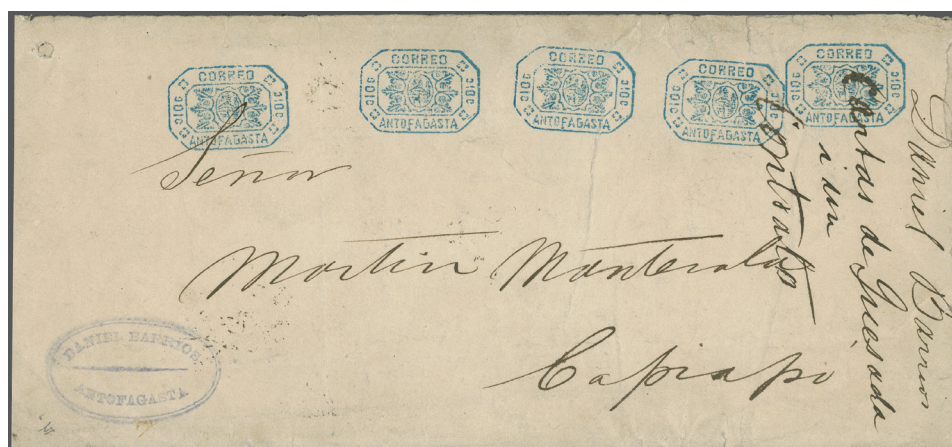 CORREO
10c 10c
ANTOFAGASTA
CORREO
10c 10c
ANTOFAGASTA
CORREO
10c 10c
ANTOFAGASTA
CORREO
10c 10c
ANTOFAGASTA
CORREO
10c 10c
ANTOFAGASTA
Señor
Martin Manterola
Capiapó
DANIEL BARRIOS
ANTOFAGASTA
Daniel Barrios
Cuentas de Quesada
i un
Contrato